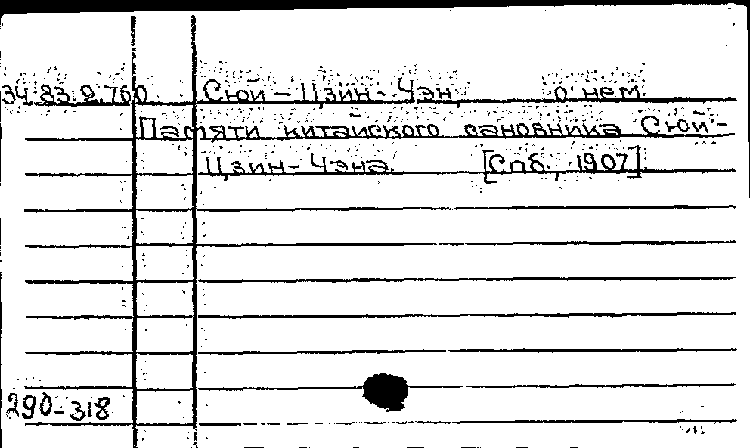 34.83.2.760 Сюй-Цзин-Чэн, о нем
Памяти китайского сановника Сюй-
Цзин-Чэна. [Спб., 1907].
290-318